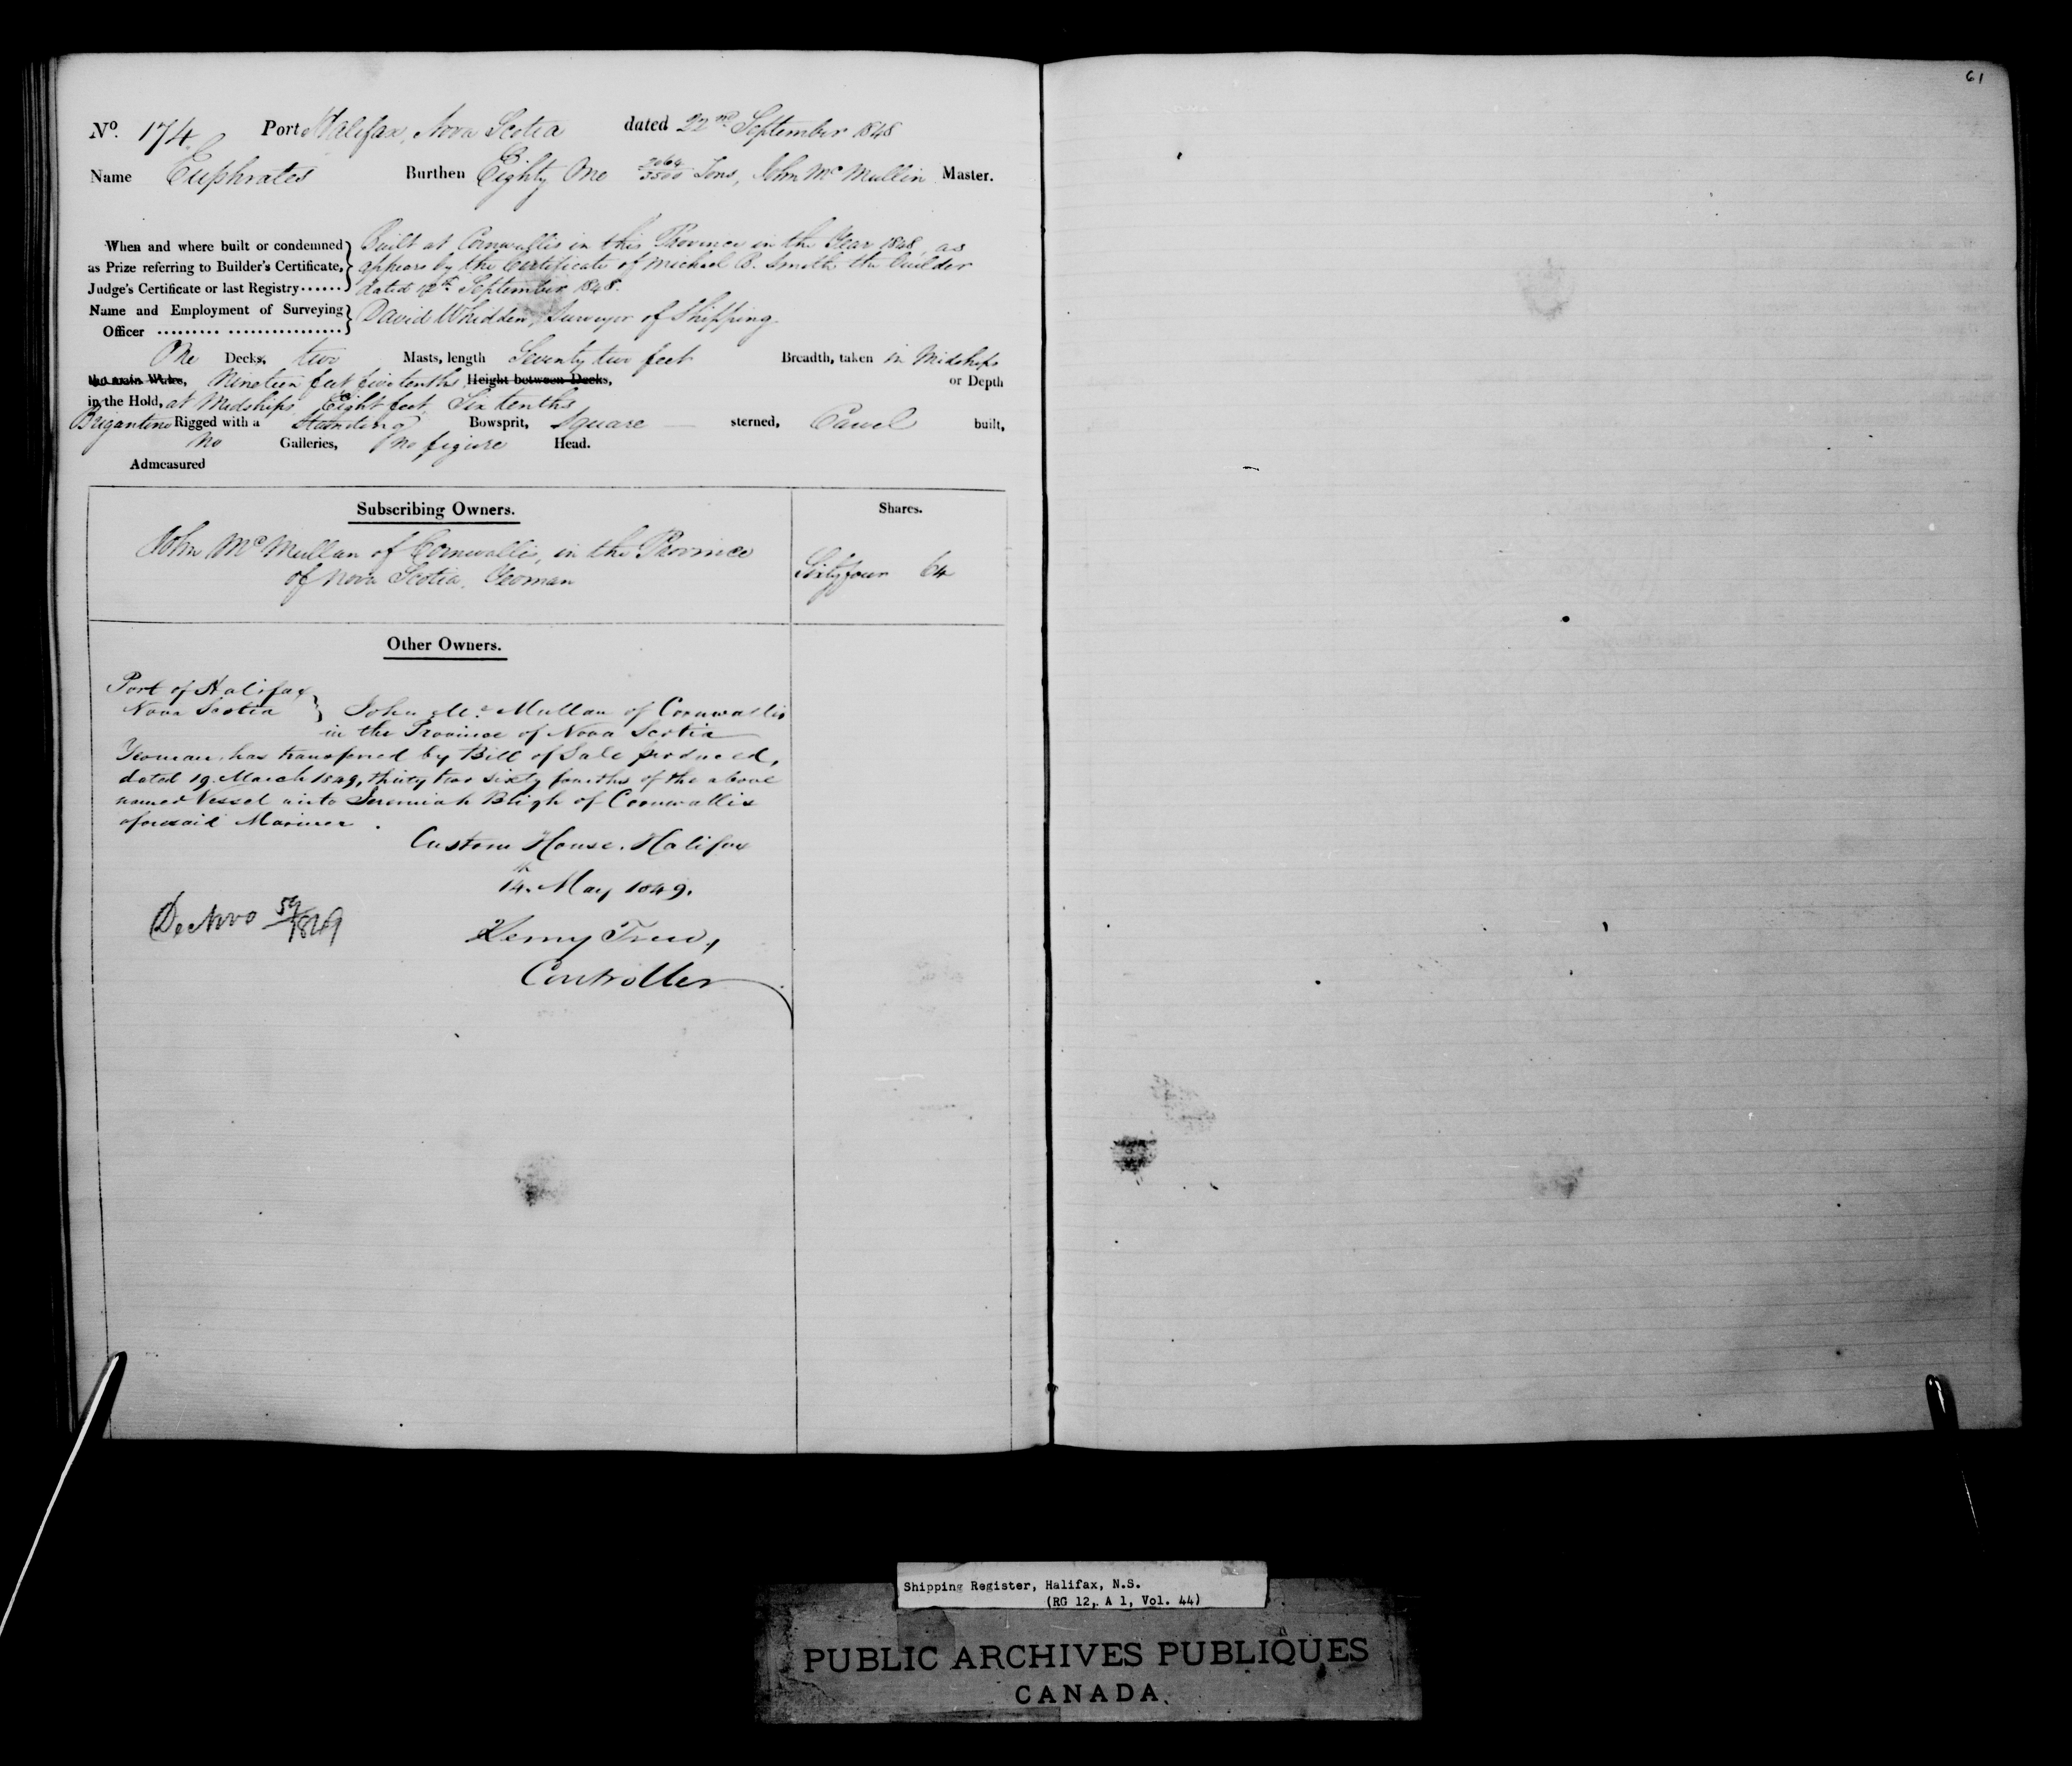 61
No. 174 Port Halifax, Nova Scotia dated 22nd September 1848
Name Euphrates Burthen Eighty One 2064/3500 Tons, John McMullin Master.
When and where built or condemned } Built at Cornwallis in this Province in the Year 1848, as
as Prize referring to Builder's Certificate, } appears by the Certificate of Michael B. Smith the builder
Judge's Certificate or last Registry...... } dated 12th September 1848.
Name and Employment of Surveying } David Whidden, Surveyor of Shipping
Officer ......... ................ }
One Decks, two Masts, length Seventy two feet Breadth, taken in Midships
the main Wales, Nineteen feet five tenths Height between Decks, or Depth
in the Hold, at Midships Eight feet Six tenths
Brigantine Rigged with a Standing Bowsprit, Square sterned, Carvel built,
No Galleries, no figure Head.
Admeasured
Subscribing Owners. Shares.
John McMullan of Cornwallis, in the Province
of Nova Scotia, Yeoman Sixty four 64
Other Owners.
Port of Halifax
Nova Scotia } John McMullan of Cornwallis
in the Province of Nova Scotia
Yeoman, has transferred by Bill of Sale produced,
dated 19 March 1849, thirty two sixty fourths of the above
named Vessel unto Jeremiah Bligh of Cornwallis
aforesaid Mariner.
Custom House, Halifax
14th May 1849.
De Novo 59/1849
Henry Trew,
Controller
Shipping Register, Halifax, N.S.
(RG 12, A 1, Vol. 44)
PUBLIC ARCHIVES PUBLIQUES
CANADA